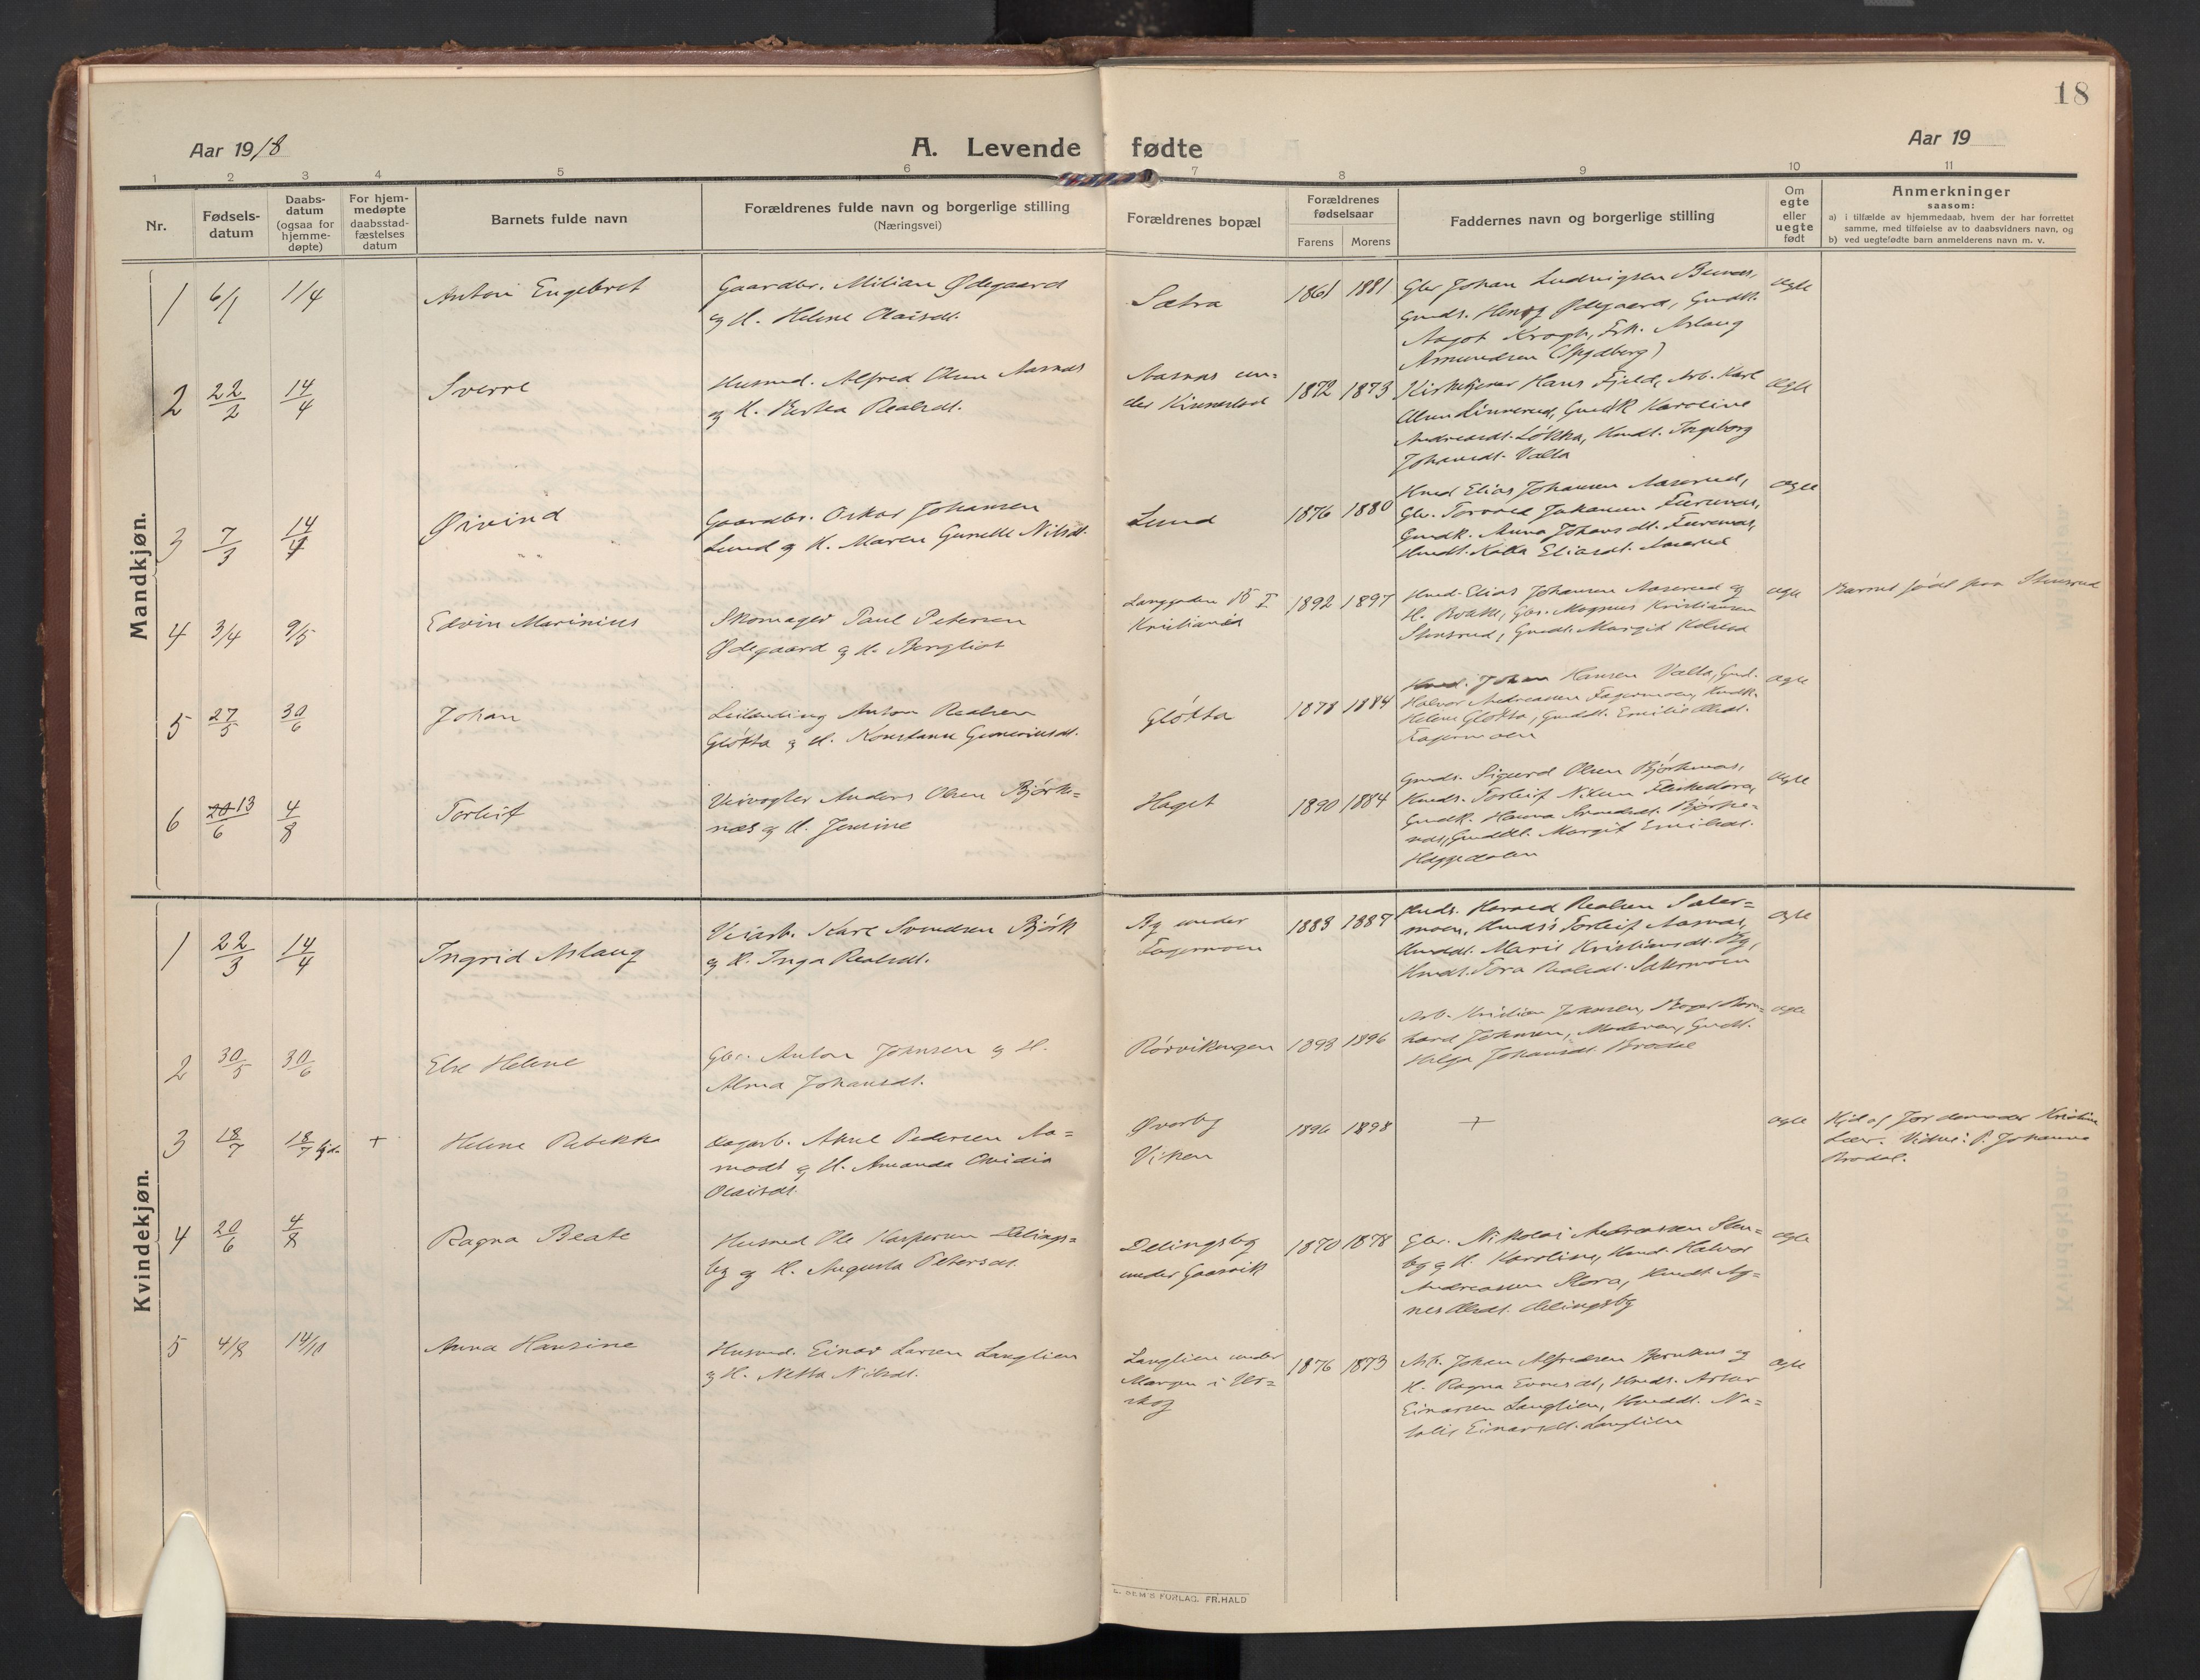 18
Aar 1918
A. Levende fødte
Aar 19
1 2 3 4 5 6 7 8 9 10 11
Nr.
Fødsels-
datum
Daabs-
datum
(ogsaa for
hjemme-
døpte)
For hjem-
medøpte
daabsstad-
fæstelses
datum
Barnets fulde navn
Forældrenes fulde navn og borgerlige stilling
(Næringsvei)
Forældrenes bopæl
Forældrenes
fødselsaar
Farens Morens
Faddernes navn og borgerlige stilling
Om
egte
eller
uegte
født
Anmerkninger
saasom:
a) i tilfælde av hjemmedaab, hvem der har forrettet
samme, med tilføielse av to daabsvidners navn, og
b) ved uegtefødte barn anmelderens navn m. v.
Mandkjøn.
1 6/1 11/4 Anton Engebret
Gaardbr. Milian Ødegaard
og H. Helene Olaisdt.
Sætra 1861 1881
Gbr Johan Ludvigsen
Gmds. Henry Ødegaard, Gmdk.
Aagot Krogh, Frk. Aslaug
Amundsen (Spydberg)
ægte
2 22/2 14/4 Sverre
Husmd. Alfred Olsen Aasnæs
og H. Berthea Realsdt.
Aasnæs un-
der Kinnestad
1872 1873
Kirketjener Hans Fjeld, Arb. Karl
Olsen Linnerud, Gmdk Karoline
Andreasdt. Løkka, Hmdt. Ingeborg
Johansdt. Valla
ægte
3 7/3 14/4 Øivind
Gaardbr. Oskar Johansen
Lund og H. Maren Gunelle Nilsdt.
Lund 1876 1880
Hmd Elias Johansen Aaserud,
Gbr. Torvald Johansen Furenæs,
Gmdk. Anna Johansdt. Furenæs,
Hmdt. Kalla Eliasdt. Aaserud
ægte
4 3/4 9/5 Edvin Marinius
Skomager Paul Petersen
Ødegaard og H. Bergliot
Kristiania
1892 1897
Hmd. Elias Johansen Aaserud og
H. Gbr. Magnus Kristiansen
Stensrud, Gmdt. Margit
ægte
Barnet født paa Stensrud
5 27/5 30/6 Johan
Leilending Anton Realsen
Gløtta og H. Konstanse Guneriusdt.
Gløtta 1878 1884
Hmd. Johan Hansen Valla, Gmd.
Halvor Andreassen Fagermoen, Hmdk.
Helene Gløtta, Gmddt. Emilie Olsdt.
Fagermoen
ægte
6 20 13/6 4/8 Torleif
Veivogter Anders Olsen Bjørke-
næs og H. Jensine
Haget 1890 1884
Gmds. Sigurd Olsen Bjørkenæs,
Hmds. Torleif Nilsen
Gmdk. Hanna Bjørke-
næs, Gmddt. Margit Emilsdt.
Haggedalen
ægte
Kvindekjøn.
1 22/3 14/4 Ingrid Aslaug
Veiarb. Karl Svendsen Bjørk
og H. Inga Realsdt.
By under
Fagermoen
1883 1887
Hmds. Harald Realsen Sæter-
moen, Hmds's Torleif Aasnæs,
Hmddt. Marie Kristiansdt. By,
Hmdt. Tora Realsdt. Sætermoen
ægte
2 30/5 30/6 Else Helene
Gbr. Anton Johnsen og H.
Alma Johansdt.
Rørvikengen 1893 1896
Arb. Kristian Johnsen, Bern-
hard Johnsen, Moderen, Gmdt.
Helga Johansdt. Brodal
ægte
3 18/7 18/7 hjd. + Helene Rebekka
Dagarb. Aksel Pedersen Aa-
modt og H. Amanda Ovidia
Olaisdt.
Øvorby
Viken
1896 1898
+
ægte
Hjd af Jordemoder Kristine
Lier. Vidne: P. Johanna
Brodal.
4 20/6 4/8 Ragna Beate
Husmd Ole Kaspersen Delings-
by og H. Augusta Petersdt.
Delingsby
under Gaasvik
1870 1878
Gbr. Nikolai Andreassen Sten-
by og H. Karoline, Hmd. Halvor
Andreassen Flora, Hmdt. Ag-
nes Olsdt. Delingsby
ægte
5 4/8 14/11 Anna Hansine
Husmd. Einar Larsen Langlien
og H. Netta Nilsdt.
Langlien under
Mangen i Ur-
skog
1876 1873
Arb. Johan Alfredsen og
H. Ragna Evensdt, Hmds. Arthur
Einarsen Langlien, Hmddt. Na-
talie Einarsdt. Langlien
ægte
E. SEM'S FORLAG. FR.HALD